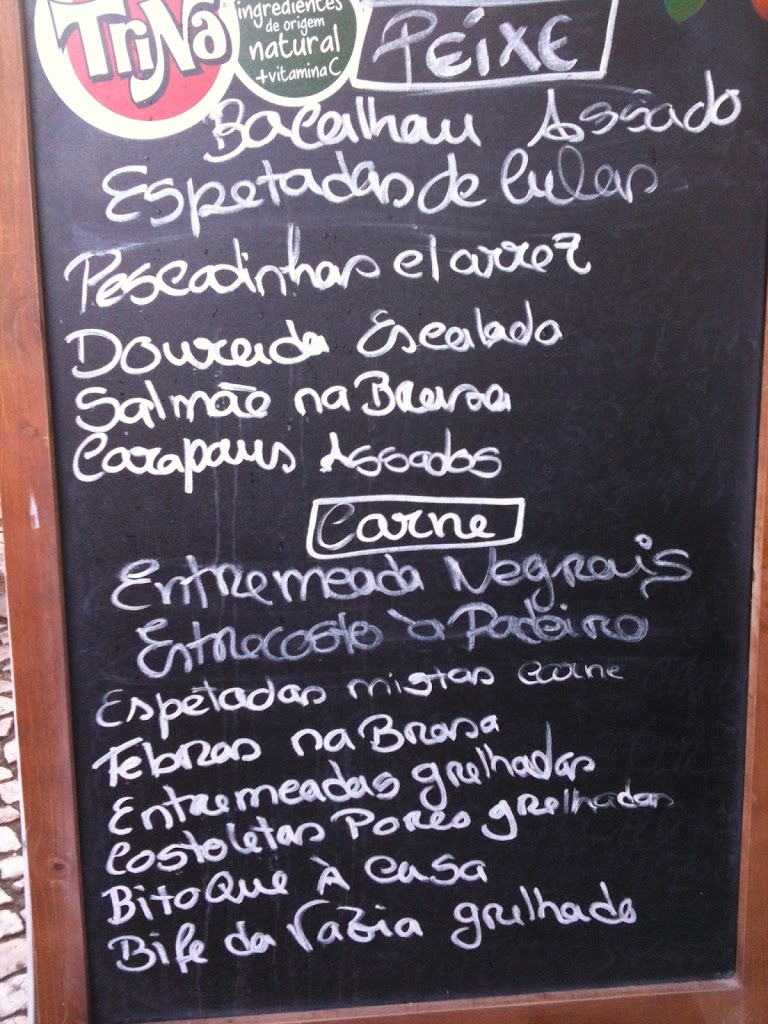 TRiNa
ingredientes
de origem
natural
+vitamina C
PEIXE
Bacalhau Assado
Espetadas de lulas
Pescadinhas c/ arroz
Dourada Escalada
Salmão na Brasa
Carapaus Assados
Carne
Entremeada Negrais
Entrecosto à Padeiro
Espetadas mistas carne
Febras na Brasa
Entremeadas grelhadas
Costoletas Porco grelhadas
BitoQue À Casa
Bife da Vazia grelhado